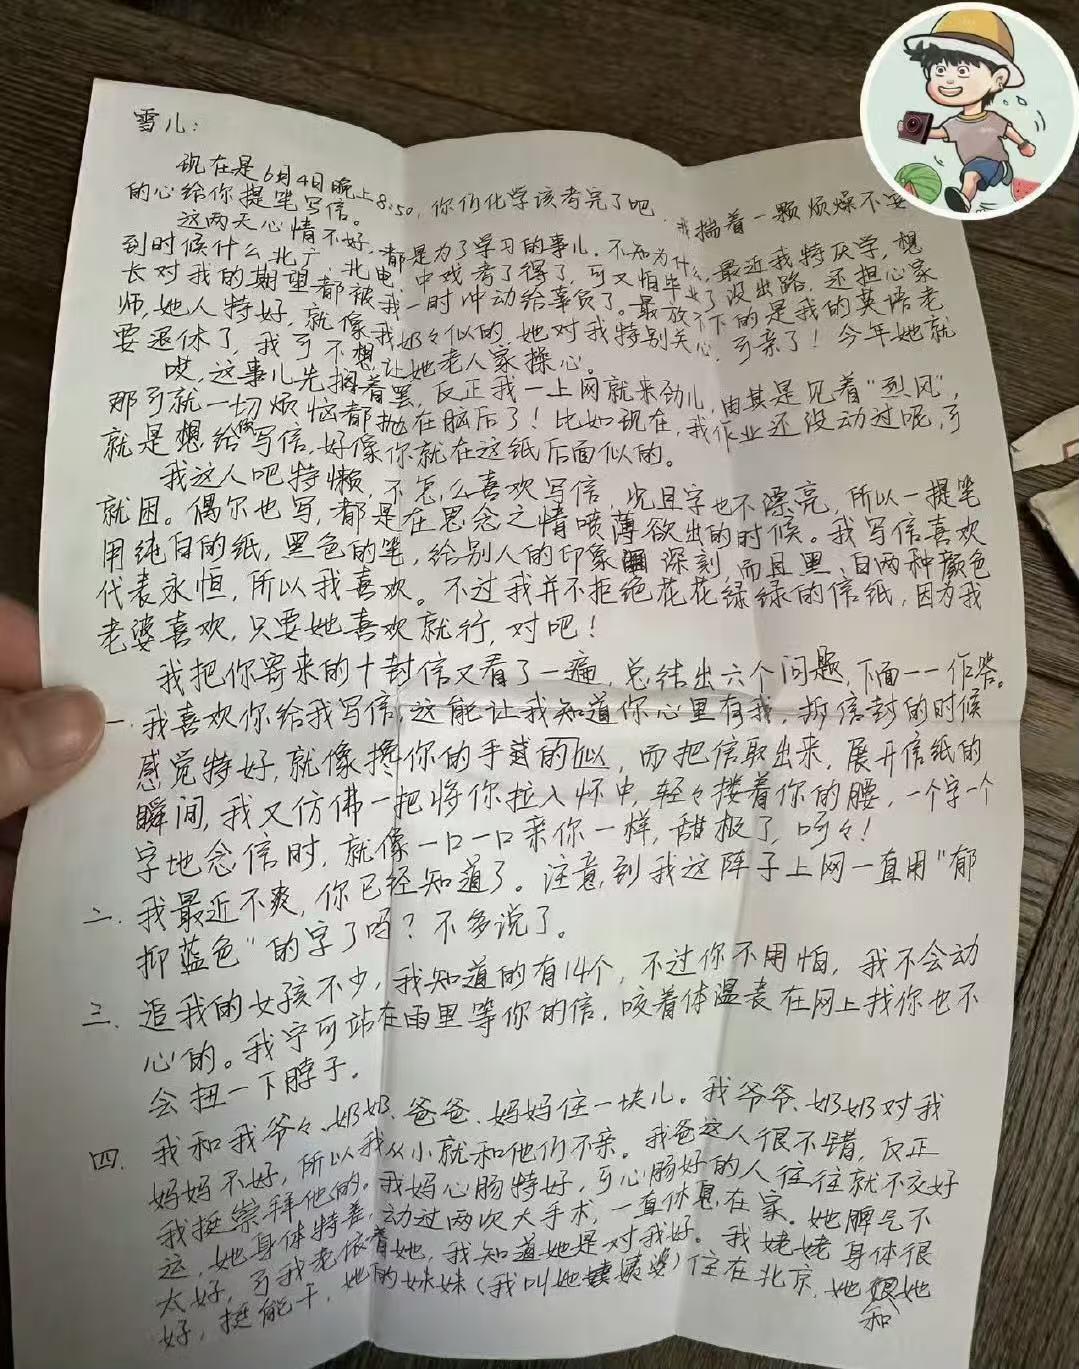 雪儿：
现在是6月4日晚上8:50，你们化学该考完了吧，我揣着一颗烦燥不安
的心给你提笔写信。
这两天心情不好，都是为了学习的事儿．不知为什么，最近我特厌学，想
到时候什么北广、北电、中戏考了得了，可又怕毕业了没出路，还担心家
长对我的期望都被我一时冲动给辜负了。最放不下的是我的英语老
师，她人特好，就像我奶々似的，她对我特别关心，可亲了！今年她就
要退休了，我可不想让她老人家操心。
哎，这事儿先搁着罢，反正我一上网就来劲儿，由其是见着“烈风”，
那可就一切烦恼都抛在脑后了！比如现在，我作业还没动过呢，可
就是想给你写信，好像你就在这纸后面似的。
我这人吧特懒，不怎么喜欢写信，况且字也不漂亮，所以一提笔
就困。偶尔也写，都是在思念之情喷薄欲出的时候。我写信喜欢
用纯白的纸，黑色的笔，给别人的印象深刻，而且黑、白两种颜色
代表永恒，所以我喜欢。不过我并不拒绝花花绿绿的信纸，因为我
老婆喜欢，只要她喜欢就行，对吧！
我把你寄来的十封信又看了一遍，总结出六个问题，下面一一作答。
一．我喜欢你给我写信，这能让我知道你心里有我，拆信封的时候
感觉特好，就像搀你的手似的，而把信取出来，展开信纸的
瞬间，我又仿佛一把将你拉入怀中，轻々搂着你的腰，一个字一个
字地念信时，就像一口一口亲你一样，甜极了，呵々！
二．我最近不爽，你已经知道了。注意到我这阵子上网一直用“郁
抑蓝色”的字了吗？不多说了。
三．追我的女孩不少，我知道的有14个，不过你不用怕，我不会动
心的。我宁可站在雨里等你的信，咬着体温表在网上找你也不
会扭一下脖子。
四．我和我爷々、奶奶、爸爸、妈妈住一块儿。我爷爷、奶奶对我
妈妈不好，所以我从小就和他们不亲。我爸这人很不错，反正
我挺崇拜他的。我妈心肠特好，可心肠好的人往往就不交好
运，她身体特差，动过两次大手术，一直休息在家。她脾气不
太好，可我老依着她，我知道她是对我好。我姥姥身体很
好，挺能干，她的妹妹（我叫她姨婆）住在北京，她和她